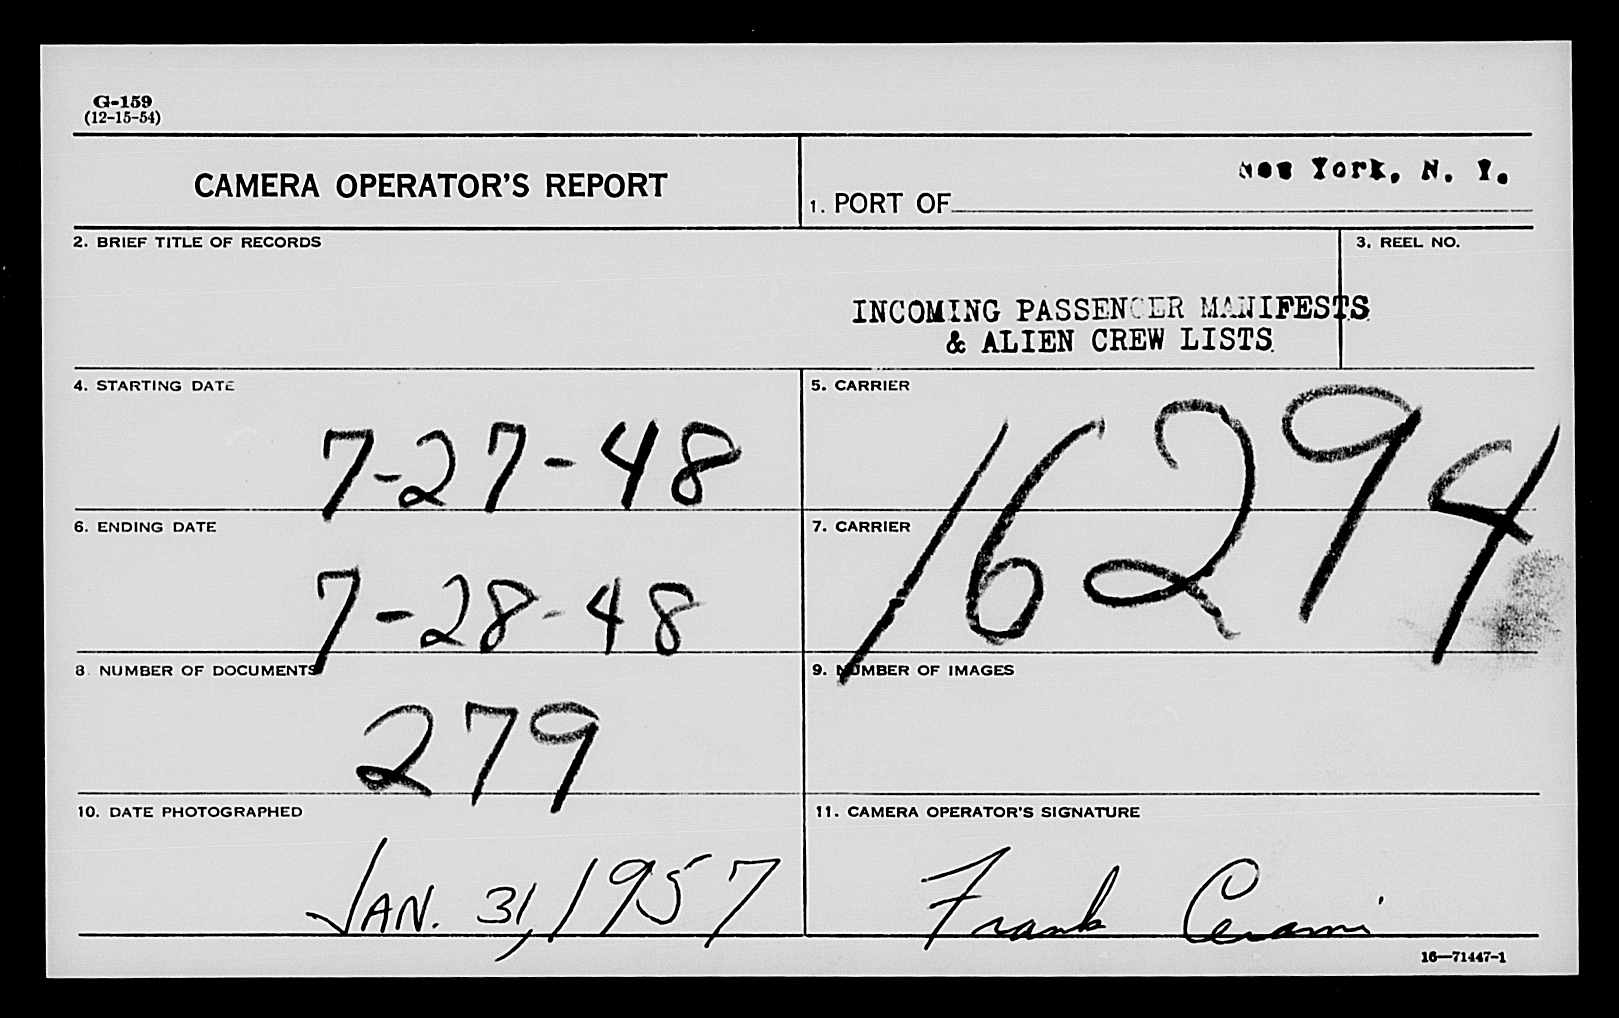 G-159
(12-15-54)
CAMERA OPERATOR'S REPORT
1. PORT OF New York, N. Y.
2. BRIEF TITLE OF RECORDS
3. REEL NO.
INCOMING PASSENGER MANIFESTS
& ALIEN CREW LISTS.
4. STARTING DATE
7-27-48
5. CARRIER
16294
6. ENDING DATE
7-28-48
7. CARRIER
8. NUMBER OF DOCUMENTS
279
9. NUMBER OF IMAGES
10. DATE PHOTOGRAPHED
JAN. 31, 1957
11. CAMERA OPERATOR'S SIGNATURE
Frank Cerami
16—71447-1